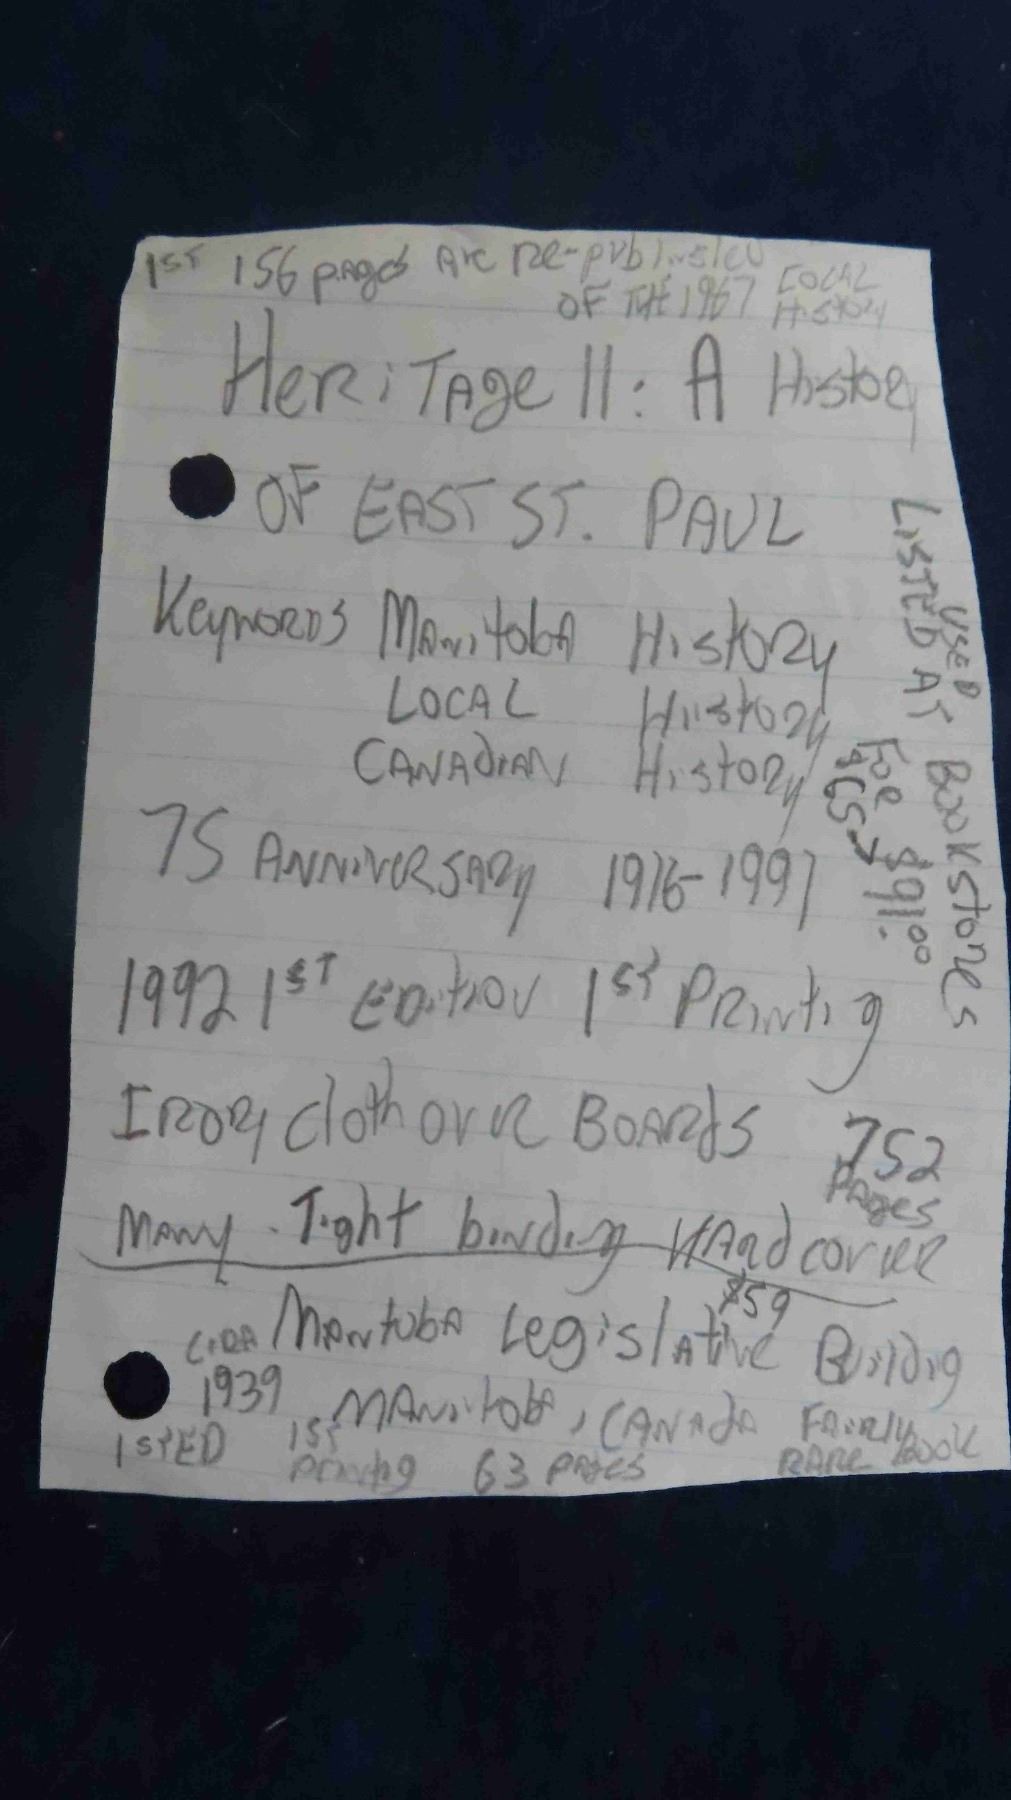 1ST 156 pages are re-published
OF THE 1967 LOCAL HISTORY
HERITAGE II: A HISTORY
OF EAST ST. PAUL
Keywords MANitobA HISTORY
LOCAL HISTORY
CANADIAN HISTORY
75 ANNIVERSARY 1916-1991
1992 1ST EDITION 1ST PRINTIG
cloth OVER BOARDS 752 PAGES
MANY Tight binding HARd COVER
$59
MANITOBA LegislAtive BuildiNg
CIRCA 1939 MANITOBA, CANADA FAIRLY RARE BOOK
1STED 1ST PRINTING 63 PAGES
LISTED AT USED BOOKSTORES
FOR $91.00